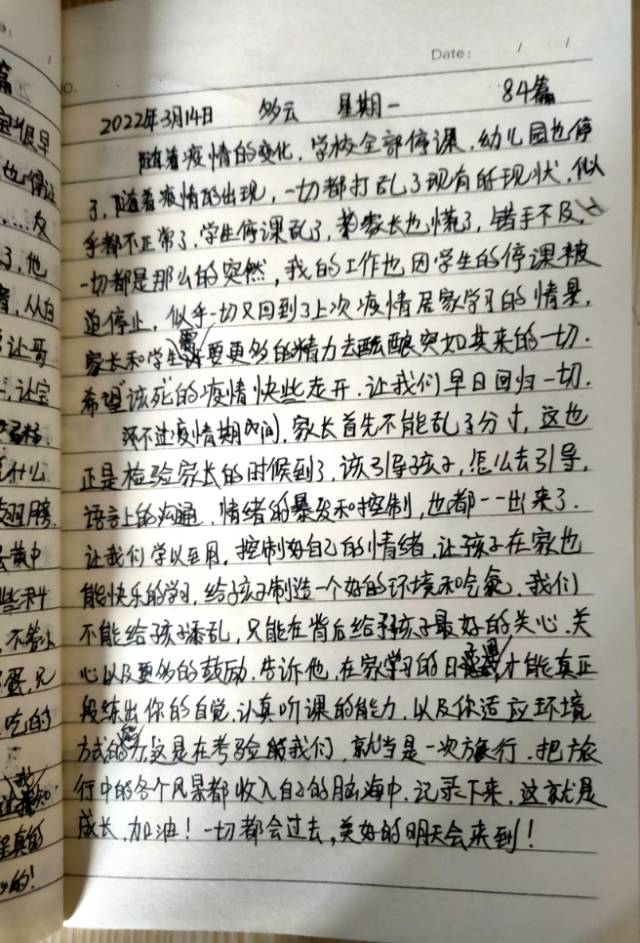 Date: / /
2022年3月14日 多云 星期一 84篇
随着疫情的变化，学校全部停课，幼儿园也停
了，随着疫情的出现，一切都打乱了现有的现状，似
乎都不正常了，学生停课乱了，家长也慌了，错手不及，
一切都是那么的突然，我的工作也因学生的停课被
迫停止，似乎一切又回到了上次疫情居家学习的情景，
家长和学生需要更多的精力去酝酿突如其来的一切．
希望"该死"的疫情快些走开．让我们早日回归一切．
不过疫情期间，家长首先不能乱了分寸，这也
正是检验家长的时候到了，该引导孩子，怎么去引导，
语言上的沟通．情绪的暴发和控制，也都一一出来了．
让我们学以至用，控制好自己的情绪，让孩子在家也
能快乐的学习，给孩子制造一个好的环境和气氛．我们
不能给孩子添乱，只能在背后给予孩子最好的关心．关
心以及更多的鼓励．告诉他，在家学习的日 才能真正
段练出你的自觉．认真听课的能力．以及你适应环境
方式的 这是在考验我们，就当是一次旅行．把旅
行中的各个风景都收入自己的脑海中．记录下来，这就是
成长．加油！一切都会过去，美好的明天会来到！
篇
很早
也
友
了，他
从白
让哥
让宝
什么
翅膀
黄中
些科
不管小
蛋，又
吃的
我
真的
的！